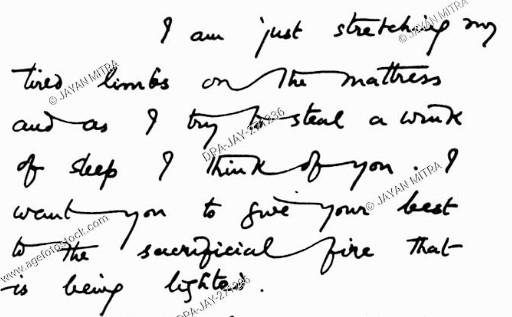 I am just stretching my
tired limbs on the mattress
and as I try to steal a wink
of sleep I think of you. I
want you to give your best
to the sacrificial fire that
is being lighted.
© JAYAN MITRA
© JAYAN MITRA
DPA-JAY-271236
© JAYAN MITRA
www.agefotostock.com
DPA-JAY-271236